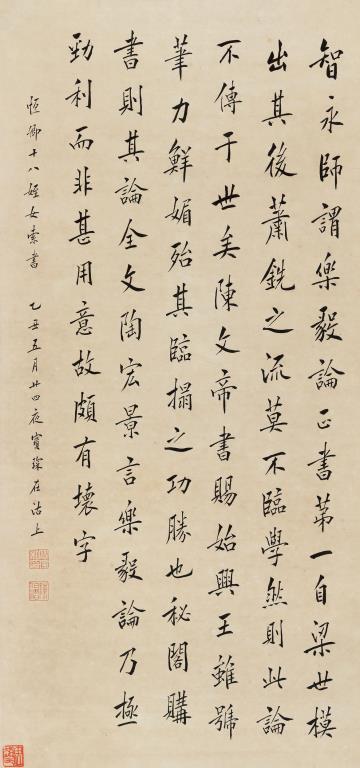 智永師謂樂毅論正書第一自梁世模
出其後蕭銑之流莫不臨學然則此論
不傳于世矣陳文帝書賜始興王雖號
筆力鮮媚殆其臨搨之功勝也秘閣購
書則其論全文陶宏景言樂毅論乃極
勁利而非甚用意故頗有壞字
恆卿十八姪女索書
乙丑五月廿四夜寶琛在沽上